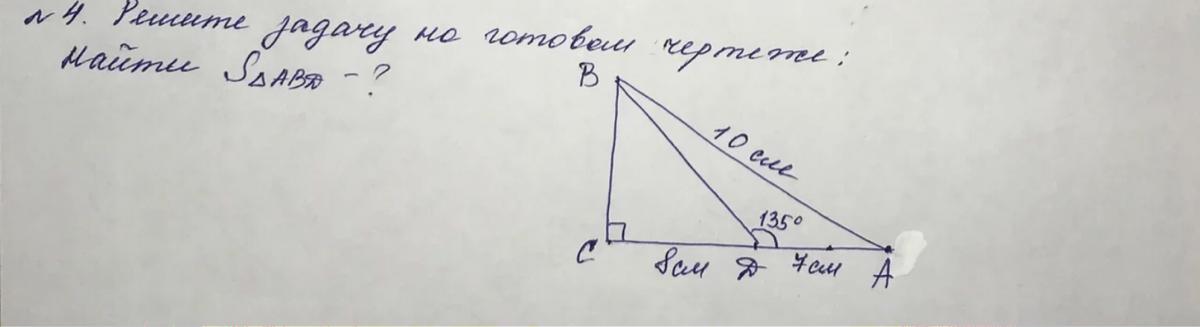 № 4. Решите задачу на готовом чертеже:
Найти S△ABD - ?
B
10 см
135°
C
8см
D
7см
A